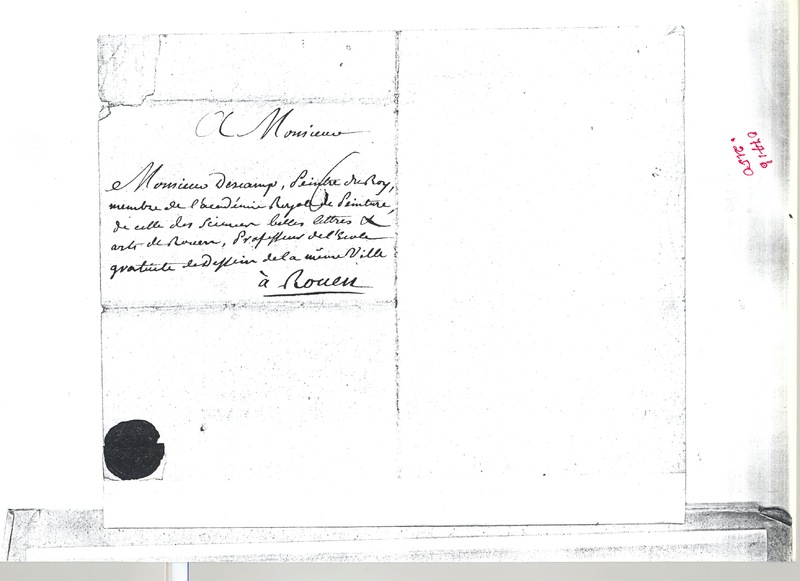 A Monsieur
Monsieur Descamp, Peintre du Roy,
membre de l'académie Royale de Peinture,
de celle des Sciences belles lettres &
arts de Rouen, Professeur de l'Ecole
gratuite de Dessein de la même Ville
à Rouen